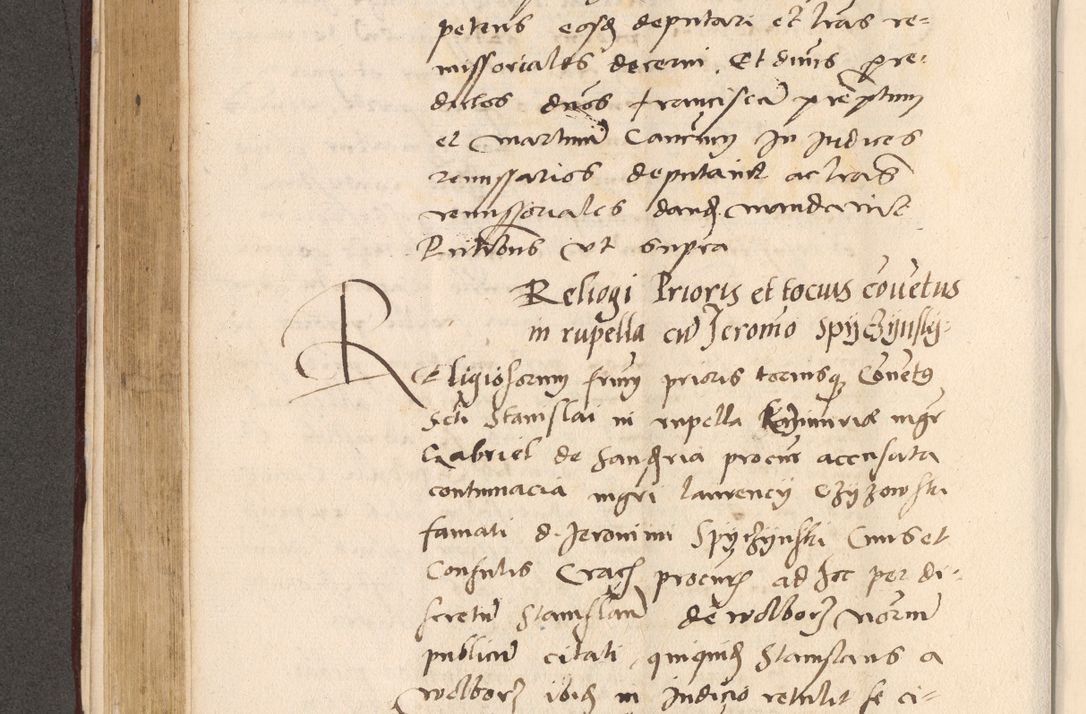 petens eosd deputari et lras re=
missoriales decerni. Et dnus pre=
dictos dnos Franciscu preptum
et Martinu Canrmy In Iudices
remissarios deputavit ac lras
remissoriales dand mandavit
Pntibus ut supra
Religiosi Prioris et tocius covetus
in rupella cu Jeromo Spyczynsky
Religiosorum frum prioris tociusq Covets
Scti Stanislai in rupella Kazimirie mgr
Gabriel de Sandria procur accusata
contumacia mgri laurency Czyzowski
famati d. Jeronimi Spyczynski Civis et
Consulis Crac procuris ad hec per di=
scretu Stanislau de wolborz notariu
publicu citati quiquid Stanislaus a
wolborz ibid in Iudicio retulit se ci=